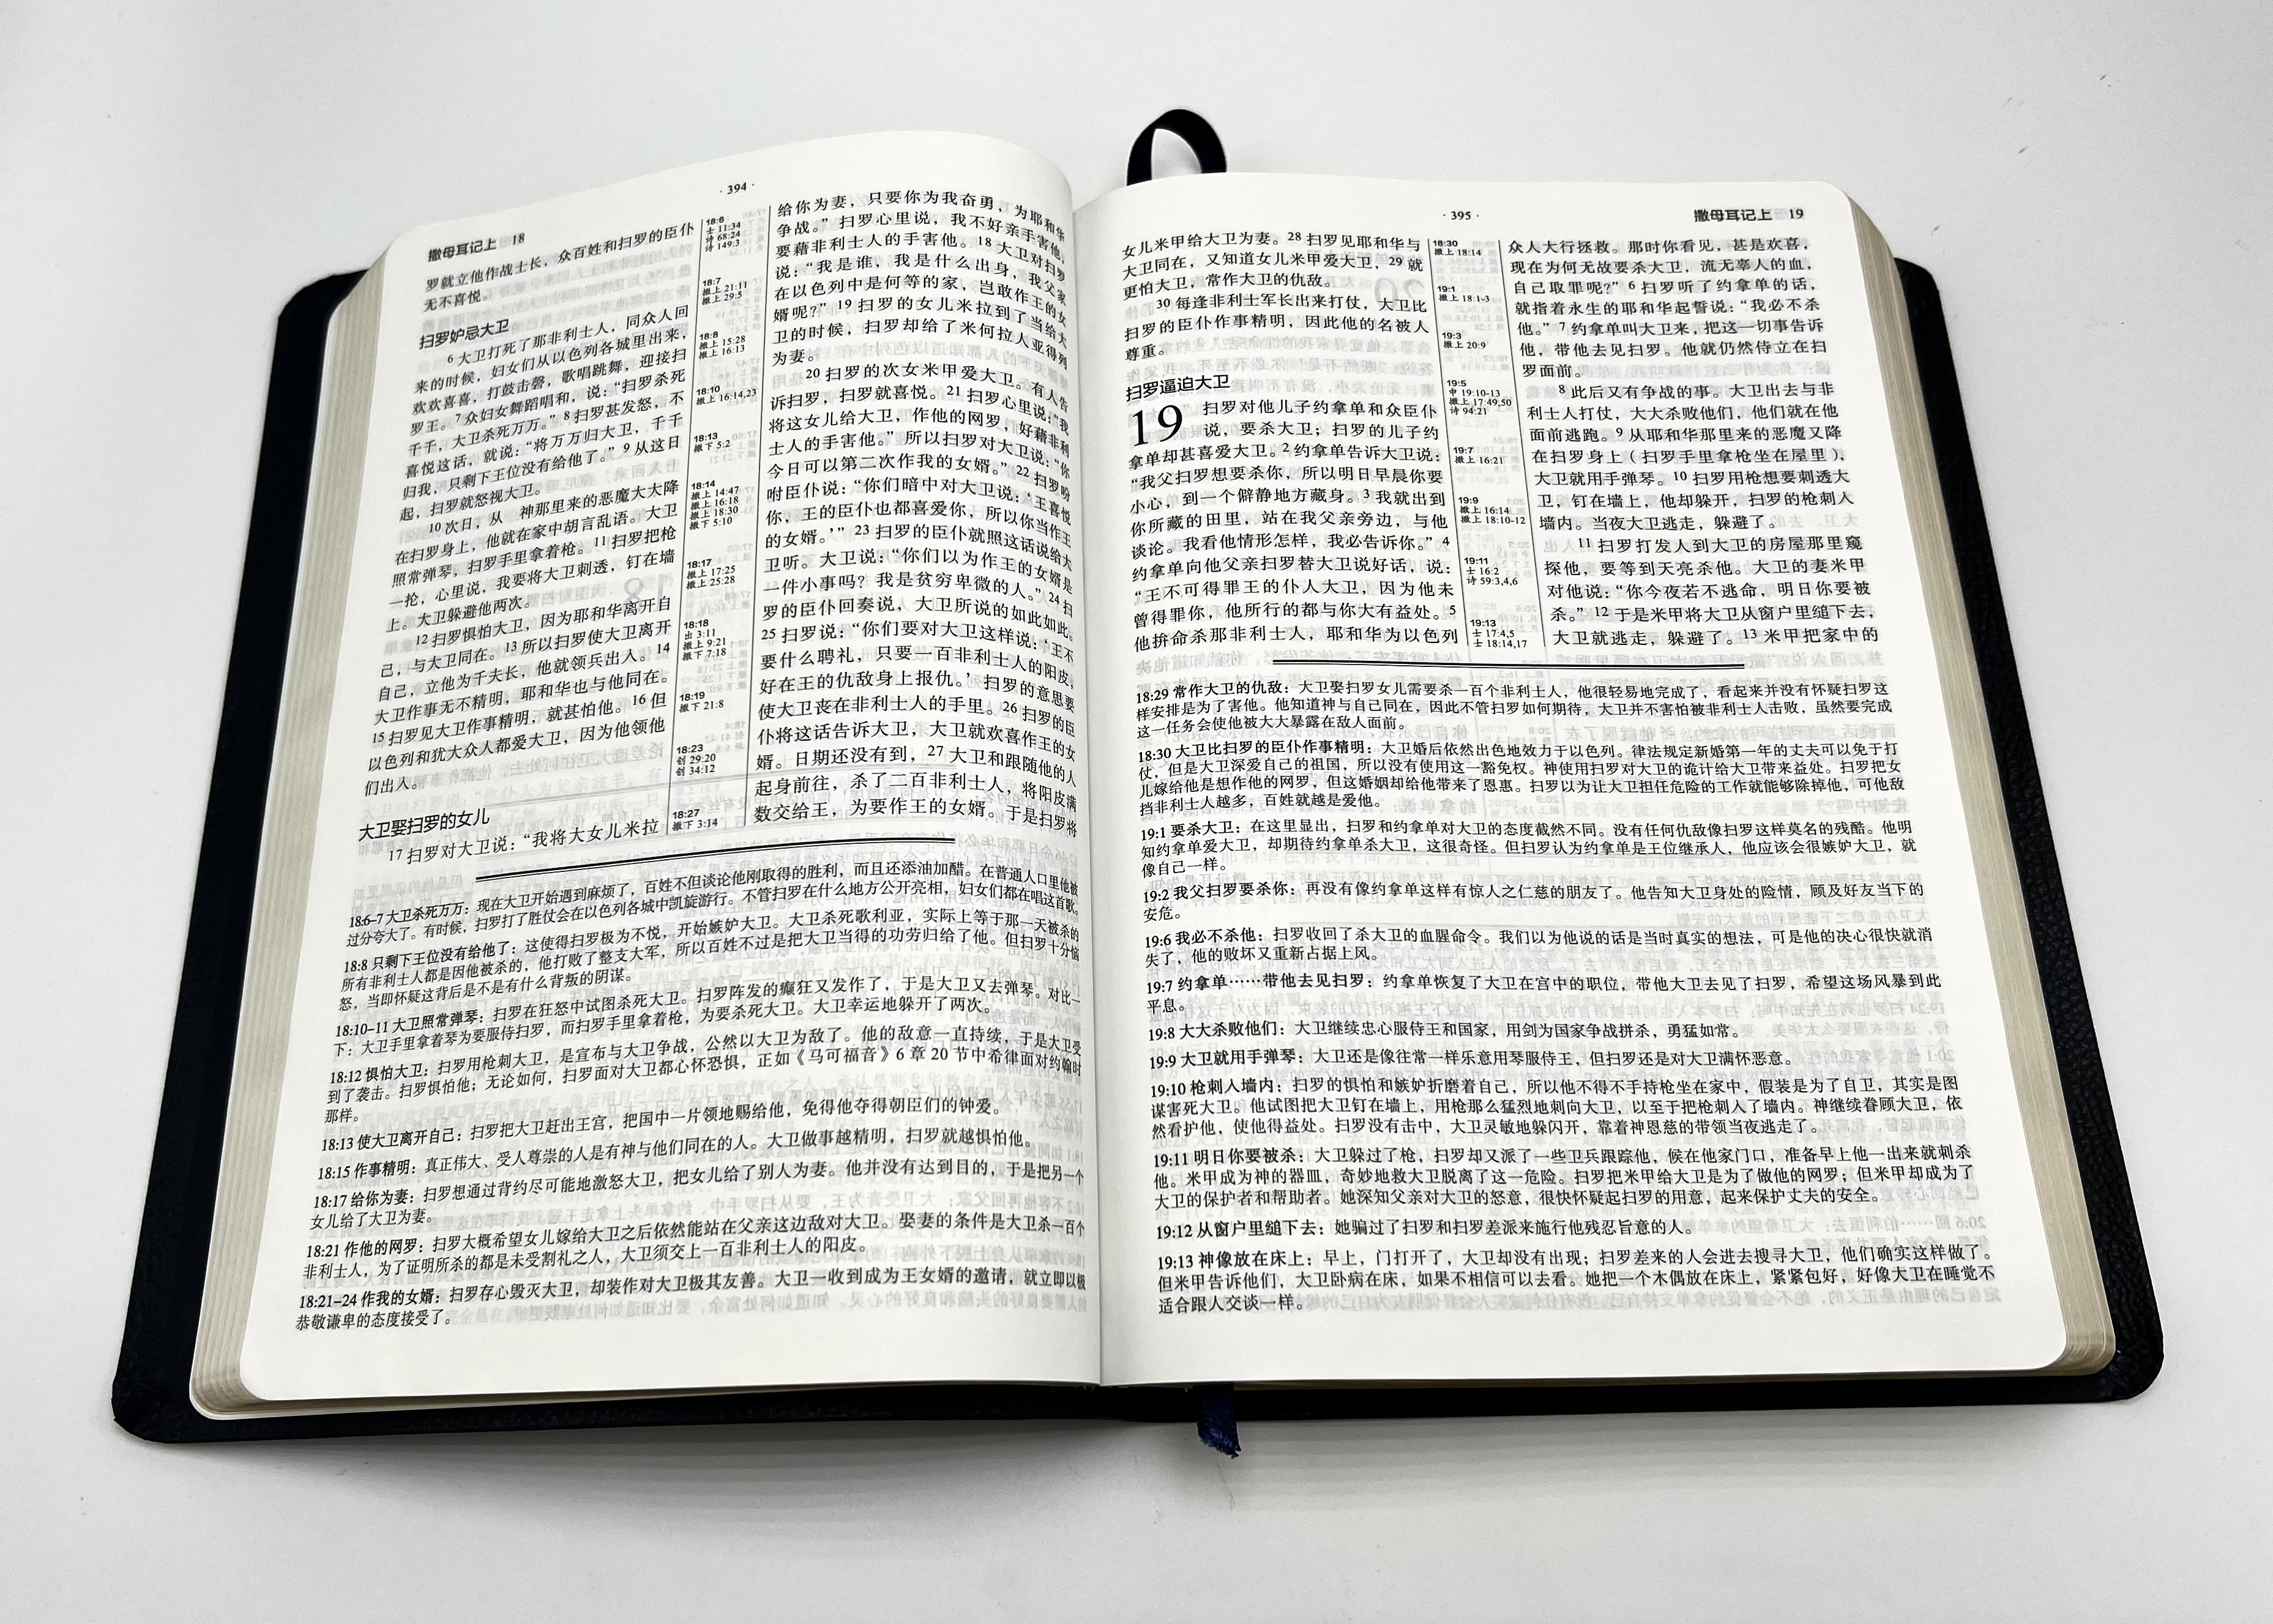 · 394 ·
撒母耳记上 18
罗就立他作战士长，众百姓和扫罗的臣仆
无不喜悦。
扫罗妒忌大卫
6 大卫打死了那非利士人，同众人回
来的时候，妇女们从以色列各城里出来，
欢欢喜喜，打鼓击磬，歌唱跳舞，迎接扫
罗王。7 众妇女舞蹈唱和，说：“扫罗杀死
千千，大卫杀死万万。”8 扫罗甚发怒，不
喜悦这话，就说：“将万万归大卫，千千
归我，只剩下王位没有给他了。”9 从这日
起，扫罗就怒视大卫。
10 次日，从 神那里来的恶魔大大降
在扫罗身上，他就在家中胡言乱语。大卫
照常弹琴，扫罗手里拿着枪。11 扫罗把枪
一抡，心里说，我要将大卫刺透，钉在墙
上。大卫躲避他两次。
12 扫罗惧怕大卫，因为耶和华离开自
己，与大卫同在。13 所以扫罗使大卫离开
自己，立他为千夫长，他就领兵出入。14
大卫作事无不精明，耶和华也与他同在。
15 扫罗见大卫作事精明，就甚怕他。16 但
以色列和犹大众人都爱大卫，因为他领他
们出入。
大卫娶扫罗的女儿
17 扫罗对大卫说：“我将大女儿米拉
18:6
士 11:34
诗 68:24
诗 149:3
18:7
撒上 21:11
撒上 29:5
18:8
撒上 15:28
撒上 16:13
18:10
撒上 16:14,23
18:13
撒下 5:2
18:14
撒上 14:47
撒上 16:18
撒上 18:30
撒下 5:10
18:17
撒上 17:25
撒上 25:28
18:18
出 3:11
撒上 9:21
撒下 7:18
18:19
撒下 21:8
18:23
创 29:20
创 34:12
18:27
撒下 3:14
给你为妻，只要你为我奋勇，为耶和华
争战。”扫罗心里说，我不好亲手害他，
要藉非利士人的手害他。18 大卫对扫罗
说：“我是谁，我是什么出身，我父家
在以色列中是何等的家，岂敢作王的女
婿呢？”19 扫罗的女儿米拉到了当给大
卫的时候，扫罗却给了米何拉人亚得列
为妻。
20 扫罗的次女米甲爱大卫。有人告
诉扫罗，扫罗就喜悦。21 扫罗心里说：“我
将这女儿给大卫，作他的网罗，好藉非利
士人的手害他。”所以扫罗对大卫说：“你
今日可以第二次作我的女婿。”22 扫罗吩
咐臣仆说：“你们暗中对大卫说：‘王喜悦
你，王的臣仆也都喜爱你，所以你当作王
的女婿。’”23 扫罗的臣仆就照这话说给大
卫听。大卫说：“你们以为作王的女婿是
一件小事吗？我是贫穷卑微的人。”24 扫
罗的臣仆回奏说，大卫所说的如此如此。
25 扫罗说：“你们要对大卫这样说：‘王不
要什么聘礼，只要一百非利士人的阳皮，
好在王的仇敌身上报仇。’扫罗的意思要
使大卫丧在非利士人的手里。26 扫罗的臣
仆将这话告诉大卫，大卫就欢喜作王的女
婿。日期还没有到，27 大卫和跟随他的人
起身前往，杀了二百非利士人，将阳皮满
数交给王，为要作王的女婿。于是扫罗将
18:6–7 大卫杀死万万：现在大卫开始遇到麻烦了，百姓不但谈论他刚取得的胜利，而且还添油加醋。在普通人口里他被
过分夸大了。有时候，扫罗打了胜仗会在以色列各城中凯旋游行。不管扫罗在什么地方公开亮相，妇女们都在唱这首歌。
18:8 只剩下王位没有给他了：这使得扫罗极为不悦，开始嫉妒大卫。大卫杀死歌利亚，实际上等于那一天被杀的
所有非利士人都是因他被杀的，他打败了整支大军，所以百姓不过是把大卫当得的功劳归给了他。但扫罗十分恼
怒，当即怀疑这背后是不是有什么背叛的阴谋。
18:10–11 大卫照常弹琴：扫罗在狂怒中试图杀死大卫。扫罗阵发的癫狂又发作了，于是大卫又去弹琴。对比一
下：大卫手里拿着琴为要服侍扫罗，而扫罗手里拿着枪，为要杀死大卫。大卫幸运地躲开了两次。
18:12 惧怕大卫：扫罗用枪刺大卫，是宣布与大卫争战，公然以大卫为敌了。他的敌意一直持续，于是大卫受
到了袭击。扫罗惧怕他；无论如何，扫罗面对大卫都心怀恐惧，正如《马可福音》6 章 20 节中希律面对约翰时
那样。
18:13 使大卫离开自己：扫罗把大卫赶出王宫，把国中一片领地赐给他，免得他夺得朝臣们的钟爱。
18:15 作事精明：真正伟大、受人尊崇的人是有神与他们同在的人。大卫做事越精明，扫罗就越惧怕他。
18:17 给你为妻：扫罗想通过背约尽可能地激怒大卫，把女儿给了别人为妻。他并没有达到目的，于是把另一个
女儿给了大卫为妻。
18:21 作他的网罗：扫罗大概希望女儿嫁给大卫之后依然能站在父亲这边敌对大卫。娶妻的条件是大卫杀一百个
非利士人，为了证明所杀的都是未受割礼之人，大卫须交上一百非利士人的阳皮。
18:21–24 作我的女婿：扫罗存心毁灭大卫，却装作对大卫极其友善。大卫一收到成为王女婿的邀请，就立即以极
恭敬谦卑的态度接受了。
· 395 ·
撒母耳记上 19
女儿米甲给大卫为妻。28 扫罗见耶和华与
大卫同在，又知道女儿米甲爱大卫，29 就
更怕大卫，常作大卫的仇敌。
30 每逢非利士军长出来打仗，大卫比
扫罗的臣仆作事精明，因此他的名被人
尊重。
扫罗逼迫大卫
19 扫罗对他儿子约拿单和众臣仆
说，要杀大卫；扫罗的儿子约
拿单却甚喜爱大卫。2 约拿单告诉大卫说：
“我父扫罗想要杀你，所以明日早晨你要
小心，到一个僻静地方藏身。3 我就出到
你所藏的田里，站在我父亲旁边，与他
谈论。我看他情形怎样，我必告诉你。”4
约拿单向他父亲扫罗替大卫说好话，说：
“王不可得罪王的仆人大卫，因为他未
曾得罪你，他所行的都与你大有益处。5
他拚命杀那非利士人，耶和华为以色列
18:30
撒上 18:14
19:1
撒上 18:1-3
19:3
撒上 20:9
19:5
申 19:10-13
撒上 17:49,50
诗 94:21
19:7
撒上 16:21
19:9
撒上 16:14
撒上 18:10-12
19:11
士 16:2
诗 59:3,4,6
19:13
士 17:4,5
士 18:14,17
众人大行拯救。那时你看见，甚是欢喜，
现在为何无故要杀大卫，流无辜人的血，
自己取罪呢？”6 扫罗听了约拿单的话，
就指着永生的耶和华起誓说：“我必不杀
他。”7 约拿单叫大卫来，把这一切事告诉
他，带他去见扫罗。他就仍然侍立在扫
罗面前。
8 此后又有争战的事。大卫出去与非
利士人打仗，大大杀败他们，他们就在他
面前逃跑。9 从耶和华那里来的恶魔又降
在扫罗身上（扫罗手里拿枪坐在屋里），
大卫就用手弹琴。10 扫罗用枪想要刺透大
卫，钉在墙上，他却躲开，扫罗的枪刺入
墙内。当夜大卫逃走，躲避了。
11 扫罗打发人到大卫的房屋那里窥
探他，要等到天亮杀他。大卫的妻米甲
对他说：“你今夜若不逃命，明日你要被
杀。”12 于是米甲将大卫从窗户里缒下去，
大卫就逃走，躲避了。13 米甲把家中的
18:29 常作大卫的仇敌：大卫娶扫罗女儿需要杀一百个非利士人，他很轻易地完成了，看起来并没有怀疑扫罗这
样安排是为了害他。他知道神与自己同在，因此不管扫罗如何期待，大卫并不害怕被非利士人击败，虽然要完成
这一任务会使他被大大暴露在敌人面前。
18:30 大卫比扫罗的臣仆作事精明：大卫婚后依然出色地效力于以色列。律法规定新婚第一年的丈夫可以免于打
仗，但是大卫深爱自己的祖国，所以没有使用这一豁免权。神使用扫罗对大卫的诡计给大卫带来益处。扫罗把女
儿嫁给他是想作他的网罗，但这婚姻却给他带来了恩惠。扫罗以为让大卫担任危险的工作就能够除掉他，可他敌
挡非利士人越多，百姓就越是爱他。
19:1 要杀大卫：在这里显出，扫罗和约拿单对大卫的态度截然不同。没有任何仇敌像扫罗这样莫名的残酷。他明
知约拿单爱大卫，却期待约拿单杀大卫，这很奇怪。但扫罗认为约拿单是王位继承人，他应该会很嫉妒大卫，就
像自己一样。
19:2 我父扫罗要杀你：再没有像约拿单这样有惊人之仁慈的朋友了。他告知大卫身处的险情，顾及好友当下的
安危。
19:6 我必不杀他：扫罗收回了杀大卫的血腥命令。我们以为他说的话是当时真实的想法，可是他的决心很快就消
失了，他的败坏又重新占据上风。
19:7 约拿单……带他去见扫罗：约拿单恢复了大卫在宫中的职位，带他大卫去见了扫罗，希望这场风暴到此
平息。
19:8 大大杀败他们：大卫继续忠心服侍王和国家，用剑为国家争战拼杀，勇猛如常。
19:9 大卫就用手弹琴：大卫还是像往常一样乐意用琴服侍王，但扫罗还是对大卫满怀恶意。
19:10 枪刺入墙内：扫罗的惧怕和嫉妒折磨着自己，所以他不得不手持枪坐在家中，假装是为了自卫，其实是图
谋害死大卫。他试图把大卫钉在墙上，用枪那么猛烈地刺向大卫，以至于把枪刺入了墙内。神继续眷顾大卫，依
然看护他，使他得益处。扫罗没有击中，大卫灵敏地躲闪开，靠着神恩慈的带领当夜逃走了。
19:11 明日你要被杀：大卫躲过了枪，扫罗却又派了一些卫兵跟踪他，候在他家门口，准备早上他一出来就刺杀
他。米甲成为神的器皿，奇妙地救大卫脱离了这一危险。扫罗把米甲给大卫是为了做他的网罗；但米甲却成为了
大卫的保护者和帮助者。她深知父亲对大卫的怒意，很快怀疑起扫罗的用意，起来保护丈夫的安全。
19:12 从窗户里缒下去：她骗过了扫罗和扫罗差派来施行他残忍旨意的人。
19:13 神像放在床上：早上，门打开了，大卫却没有出现；扫罗差来的人会进去搜寻大卫，他们确实这样做了。
但米甲告诉他们，大卫卧病在床，如果不相信可以去看。她把一个木偶放在床上，紧紧包好，好像大卫在睡觉不
适合跟人交谈一样。